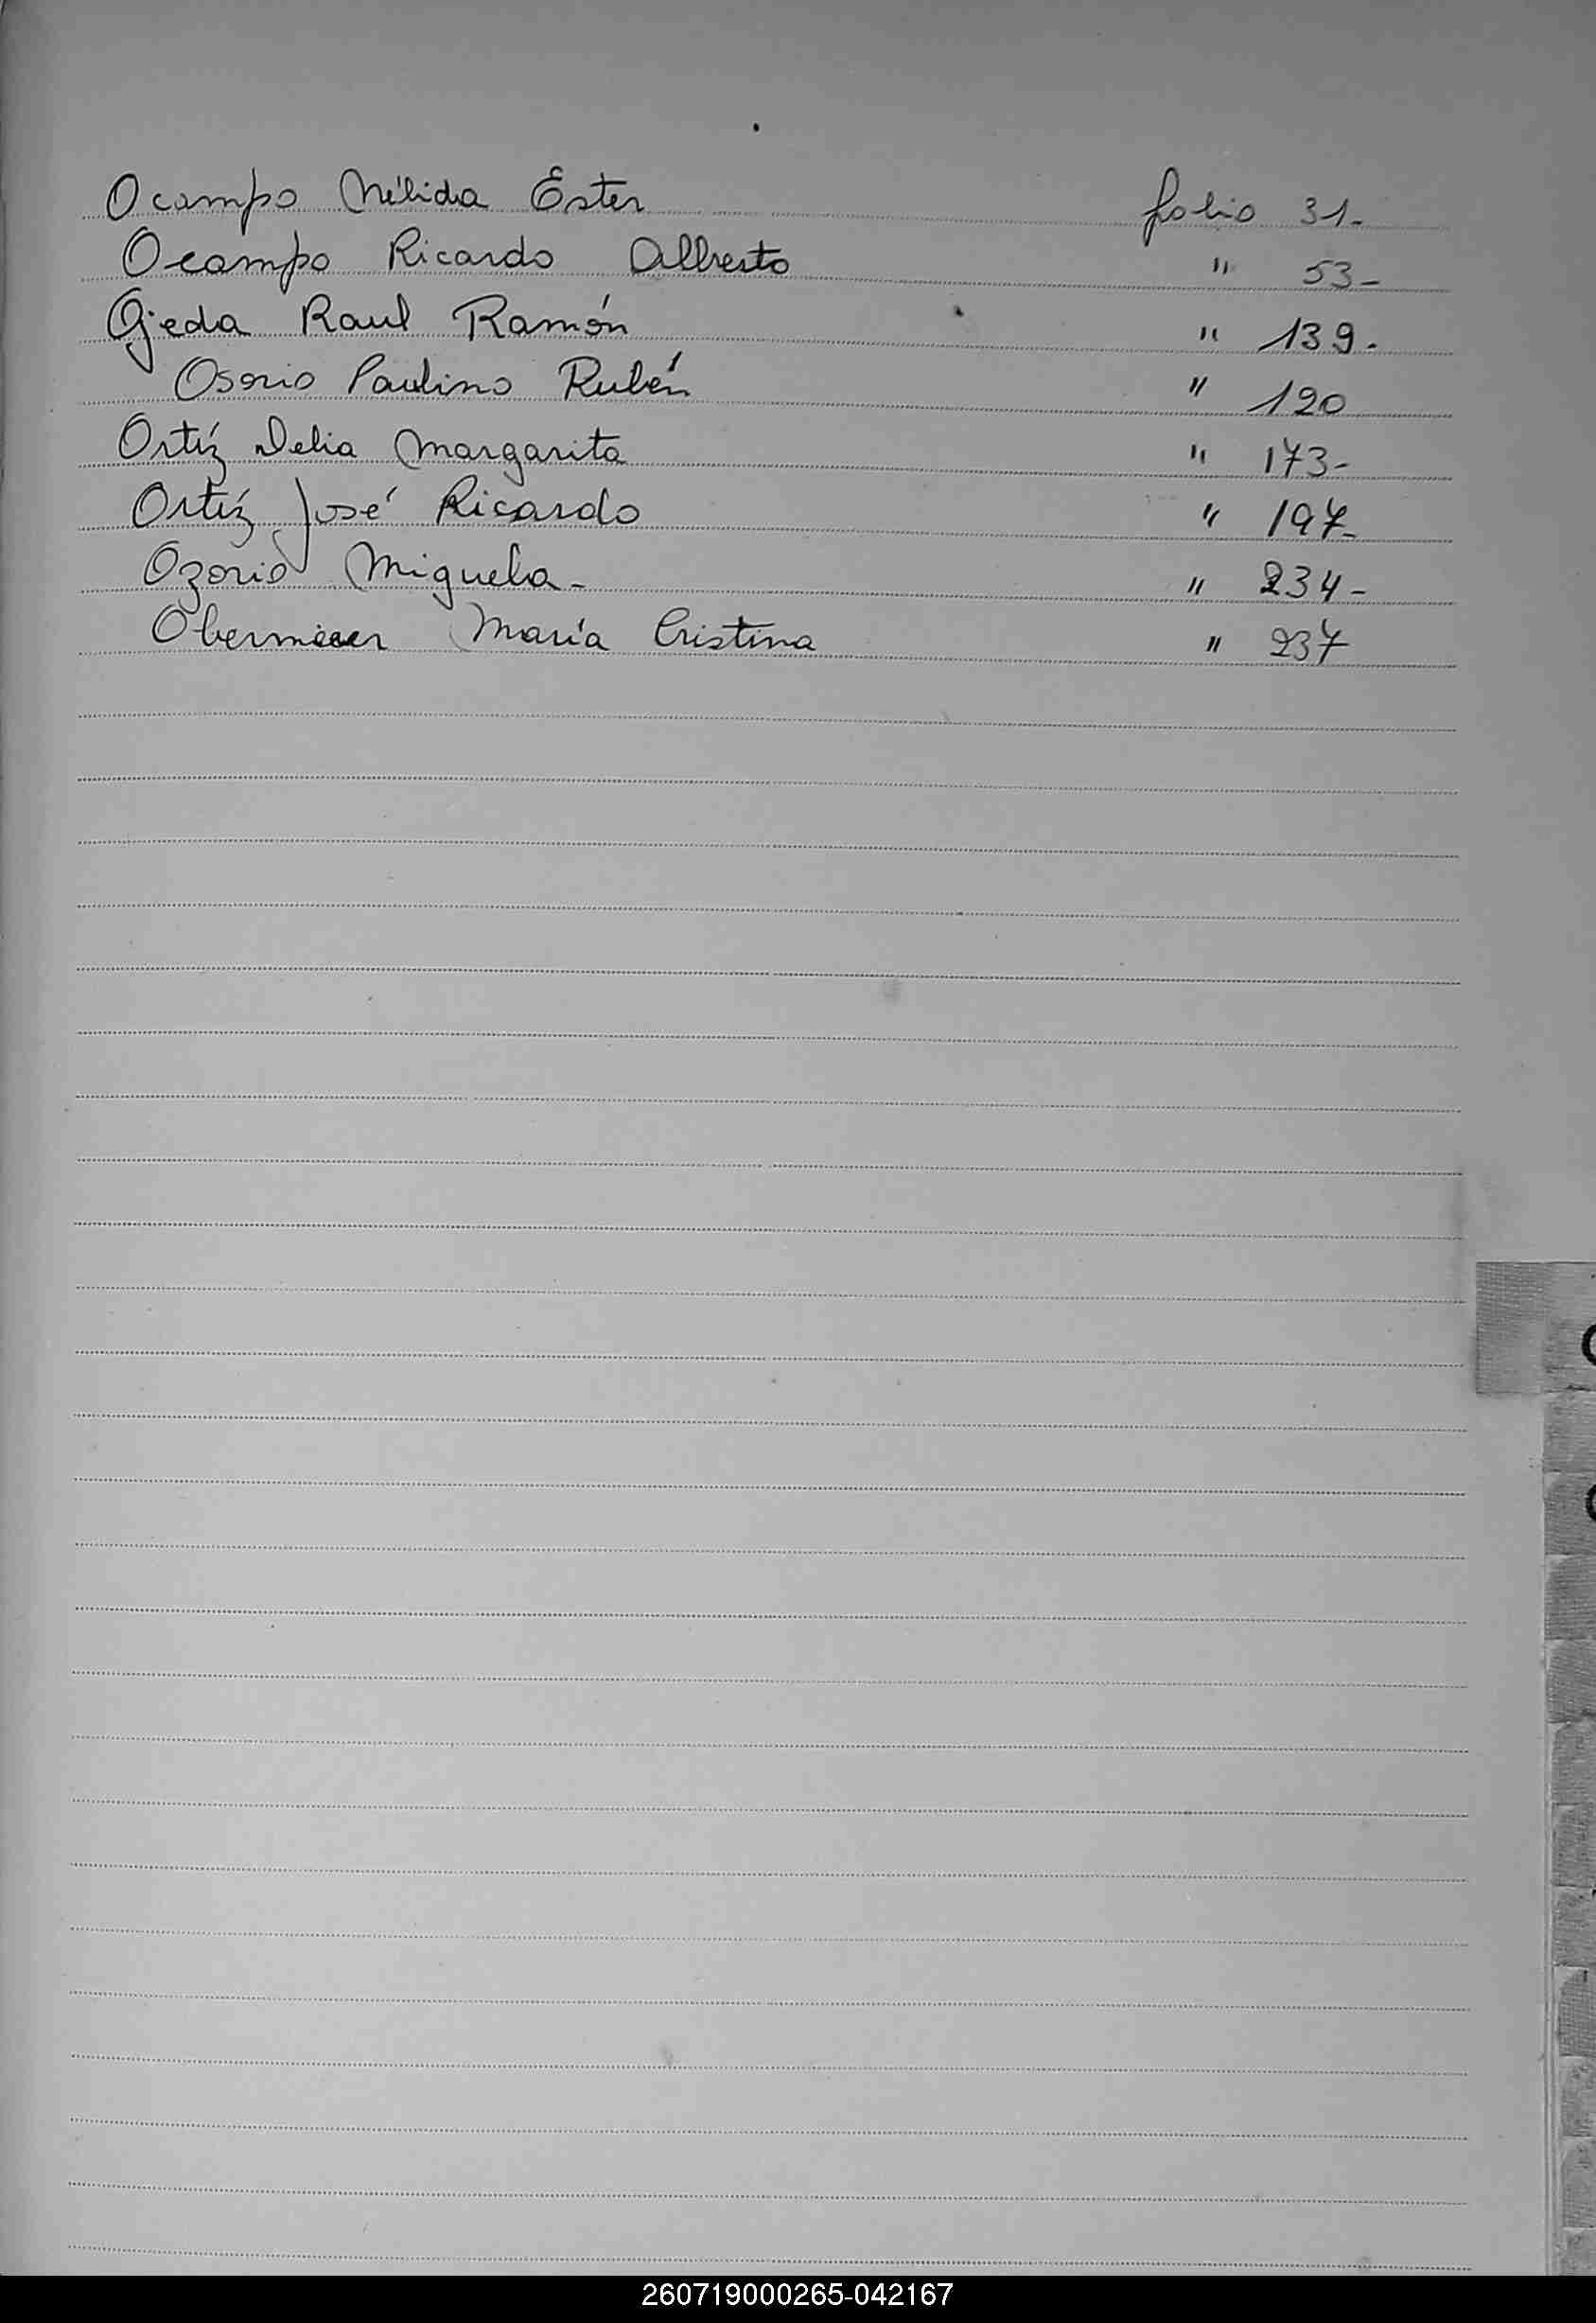 Ocampo Nélida Ester folio 31-
Ocampo Ricardo Alberto " 53-
Ojeda Raul Ramón " 139.
Osorio Paulino Rubén " 120
Ortíz Delia Margarita " 173-
Ortíz José Ricardo " 197-
Ozorio Miguela- " 234-
María Cristina " 237
260719000265-042167